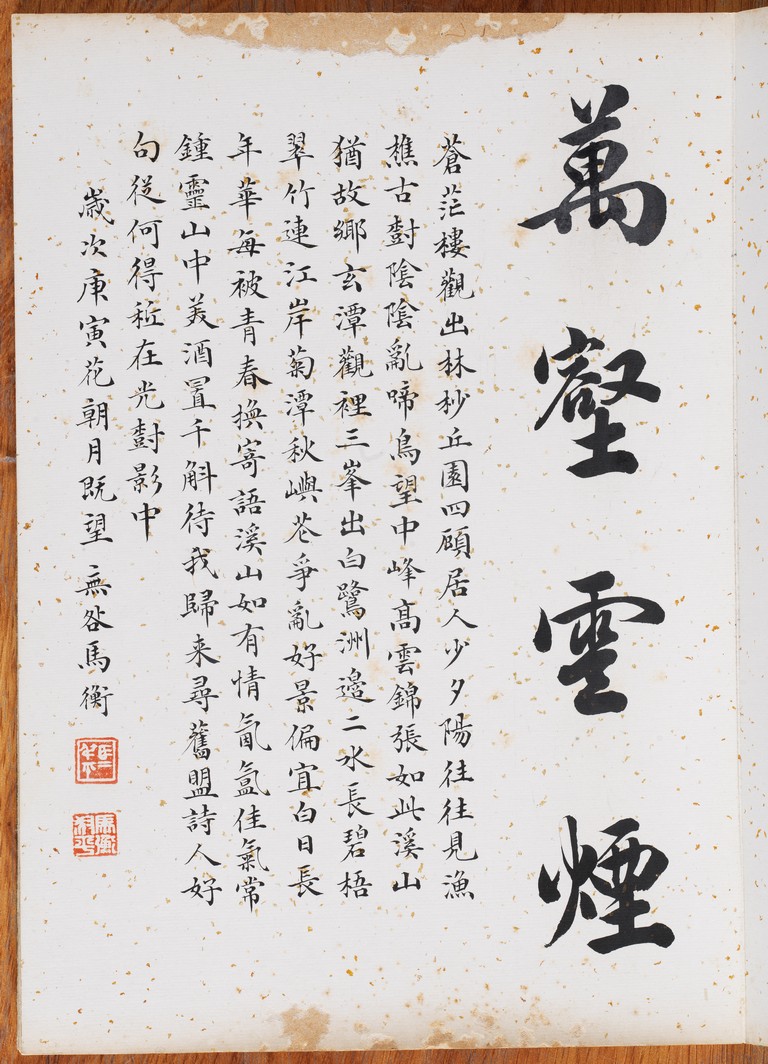 萬壑雲煙
蒼茫樓觀出林杪丘園四顧居人少夕陽往往見漁
樵古樹陰陰亂啼鳥望中峰高雲錦張如此溪山
猶故鄉玄潭觀裡三峯出白鷺洲邊二水長碧梧
翠竹連江岸菊潭秋嶼花爭亂好景偏宜白日長
年華每被青春換寄語溪山如有情氤氳佳氣常
鍾靈山中美酒置千斛待我歸来尋舊盟詩人好
句從何得秪在光樹影中
歲次庚寅花朝月既望 無咎馬衡